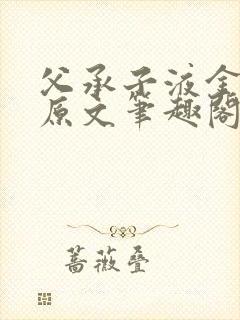 父承子液全
原文笔趣阁
蔷薇叠